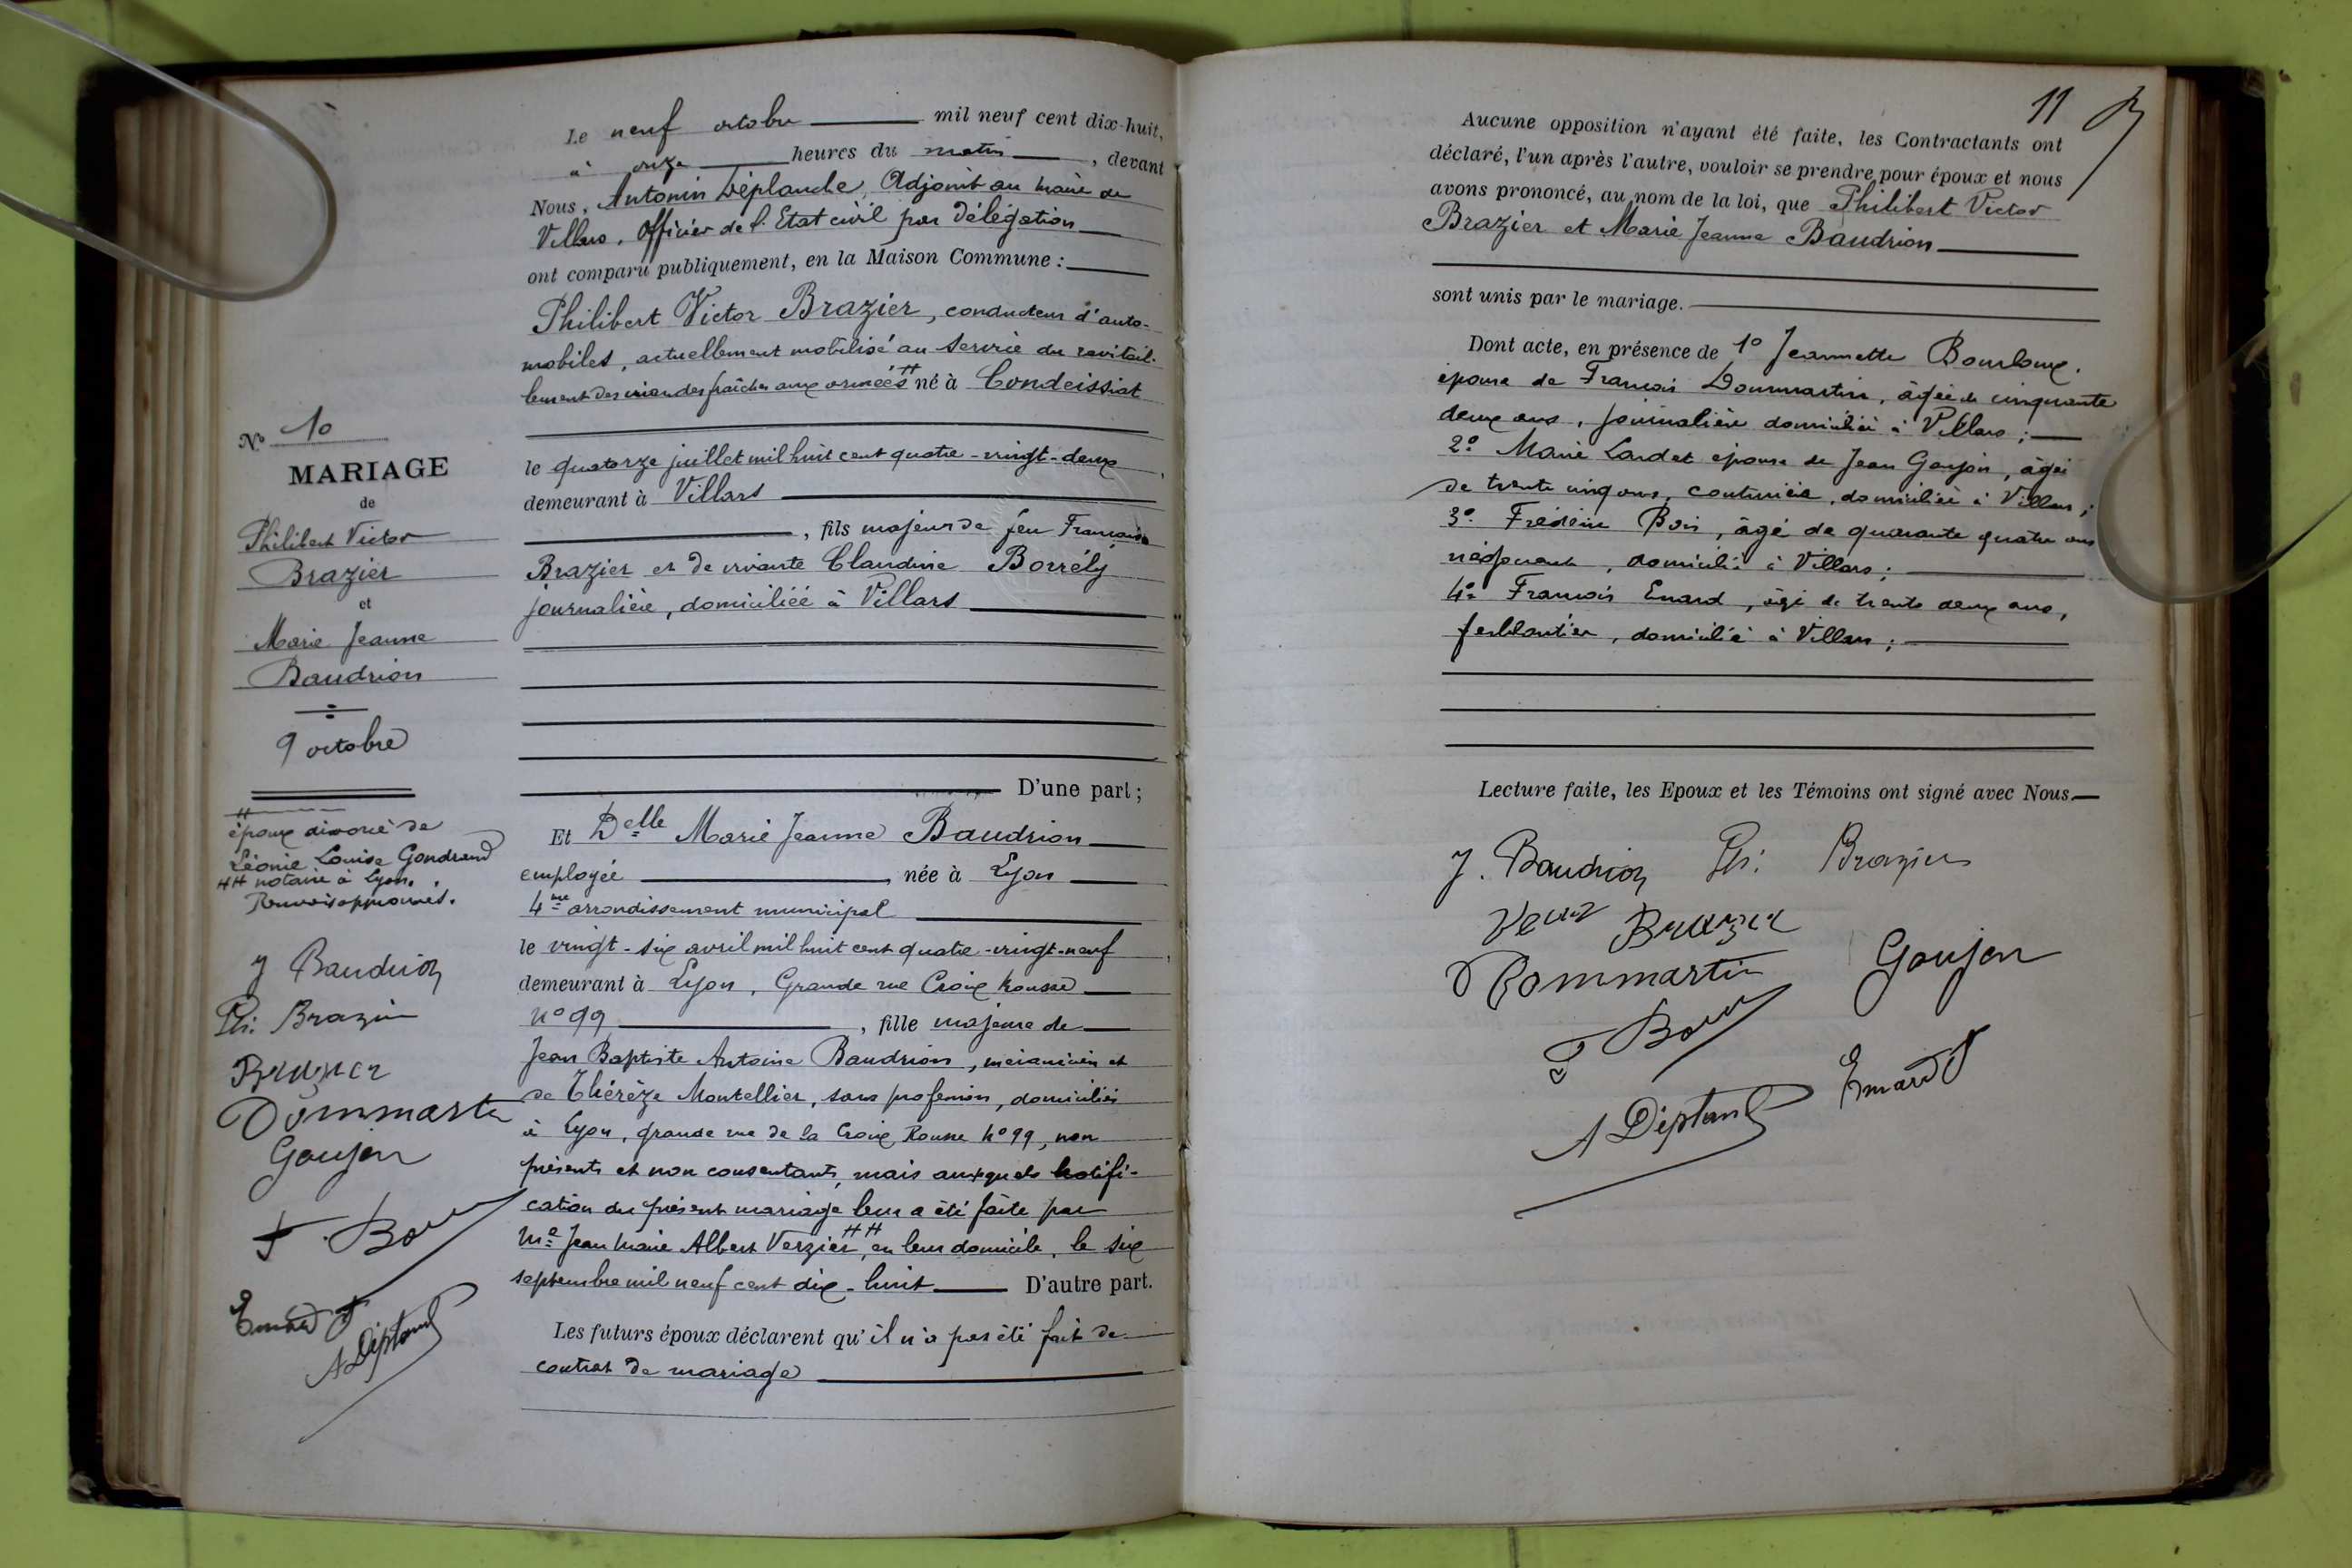 Le neuf octobre mil neuf cent dix-huit,
à onze heures du matin, devant
Nous, Antonin Déplanche, Adjoint au Maire de
Villars, Officier de l'Etat civil par délégation
ont comparu publiquement, en la Maison Commune :
Philibert Victor Brazier, conducteur d'auto-
mobiles, actuellement mobilisé au service du ravitail-
lement des viandes fraîches aux armées # né à Condeissiat
le quatorze juillet mil huit cent quatre-vingt-deux,
demeurant à Villars
, fils majeur de feu François
Brazier et de vivante Claudine Borrély
journalière, domiciliée à Villars
D'une part ;
Et Delle Marie Jeanne Baudrion
employée, née à Lyon
4me arrondissement municipal
le vingt-six avril mil huit cent quatre-vingt-neuf,
demeurant à Lyon, Grande rue Croix Rousse
N° 99, fille majeure de
Jean Baptiste Antoine Baudrion, mécanicien et
de Thérèze Montellier, sans profession, domiciliés
à Lyon, grande rue de la Croix Rousse N° 99, non
présents et non consentants, mais auxquels notifi-
cation du présent mariage leur a été faite par
Me Jean Marie Albert Verzier ##, en leur domicile, le six
septembre mil neuf cent dix-huit D'autre part.
Les futurs époux déclarent qu'il n'a pas été fait de
contrat de mariage
N° 10
MARIAGE
de
Philibert Victor
Brazier
et
Marie Jeanne
Baudrion
9 octobre
#
époux divorcé de
Léonie Louise Gondrand
## notaire à Lyon.
Renvois approuvés.
J Baudrion
Ph: Brazier
Brazier
Dommartin
Goujon
F Bois
Emard F
A Déplanche
11
Aucune opposition n'ayant été faite, les Contractants ont
déclaré, l'un après l'autre, vouloir se prendre pour époux et nous
avons prononcé, au nom de la loi, que Philibert Victor
Brazier et Marie Jeanne Baudrion
sont unis par le mariage.
Dont acte, en présence de 1° Jeannette Bourloux.
épouse de François Dommartin, âgée de cinquante
deux ans, journalière domiciliée à Villars ;
2° Marie Lardet épouse de Jean Goujon, âgée
de trente cinq ans, couturière, domiciliée à Villars ;
3° Frédéric Bois, âgé de quarante quatre ans
négociant, domicilié à Villars ;
4° François Emard, âgé de trente deux ans,
ferblantier, domicilié à Villars ;
Lecture faite, les Epoux et les Témoins ont signé avec Nous
J. Baudrion Ph: Brazier
Veuve Brazier
Dommartin Goujon
F Bois
Emard F
A Déplanche